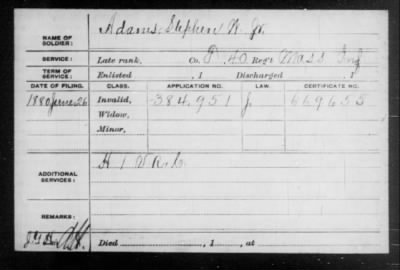 NAME OF SOLDIER: Adams Stephen W. Jr.
SERVICE: Late rank, Co. 40 Reg't Mass Inf
TERM OF SERVICE: Enlisted , 1 Discharged , 1
DATE OF FILING. CLASS. APPLICATION NO. LAW. CERTIFICATE NO.
1880 June 26 Invalid, 384,951 J. 669655
Widow,
Minor,
ADDITIONAL SERVICES: H 1 V R C
REMARKS:
Died , 1 , at